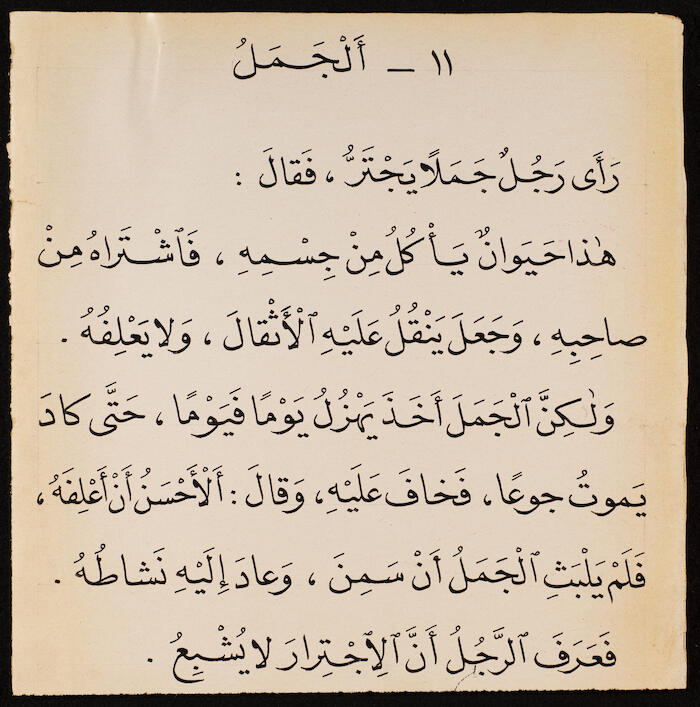 ١١ – أَلْجَمَلُ
رَأَى رَجُلٌ جَمَلًا يَجْتَرُّ ، فَقالَ :
هٰذا حَيَوانٌ يَأْكُلُ مِنْ جِسْمِهِ ، فَٱشْتَراهُ مِنْ
صاحِبِهِ ، وَجَعَلَ يَنْقُلُ عَلَيْهِ ٱلْأَثْقالَ ، وَلا يَعْلِفُهُ .
وَلٰكِنَّ ٱلْجَمَلَ أَخَذَ يَهْزُلُ يَوْمًا فَيَوْمًا ، حَتَّى كادَ
يَموتُ جوعًا ، فَخافَ عَلَيْهِ ، وَقالَ : أَلْأَحْسَنُ أَنْ أَعْلِفَهُ ،
فَلَمْ يَلْبَثِ ٱلْجَمَلُ أَنْ سَمِنَ ، وَعادَ إِلَيْهِ نَشاطُهُ .
فَعَرَفَ ٱلرَّجُلُ أَنَّ ٱلِٱجْتِرارَ لا يُشْبِعُ .